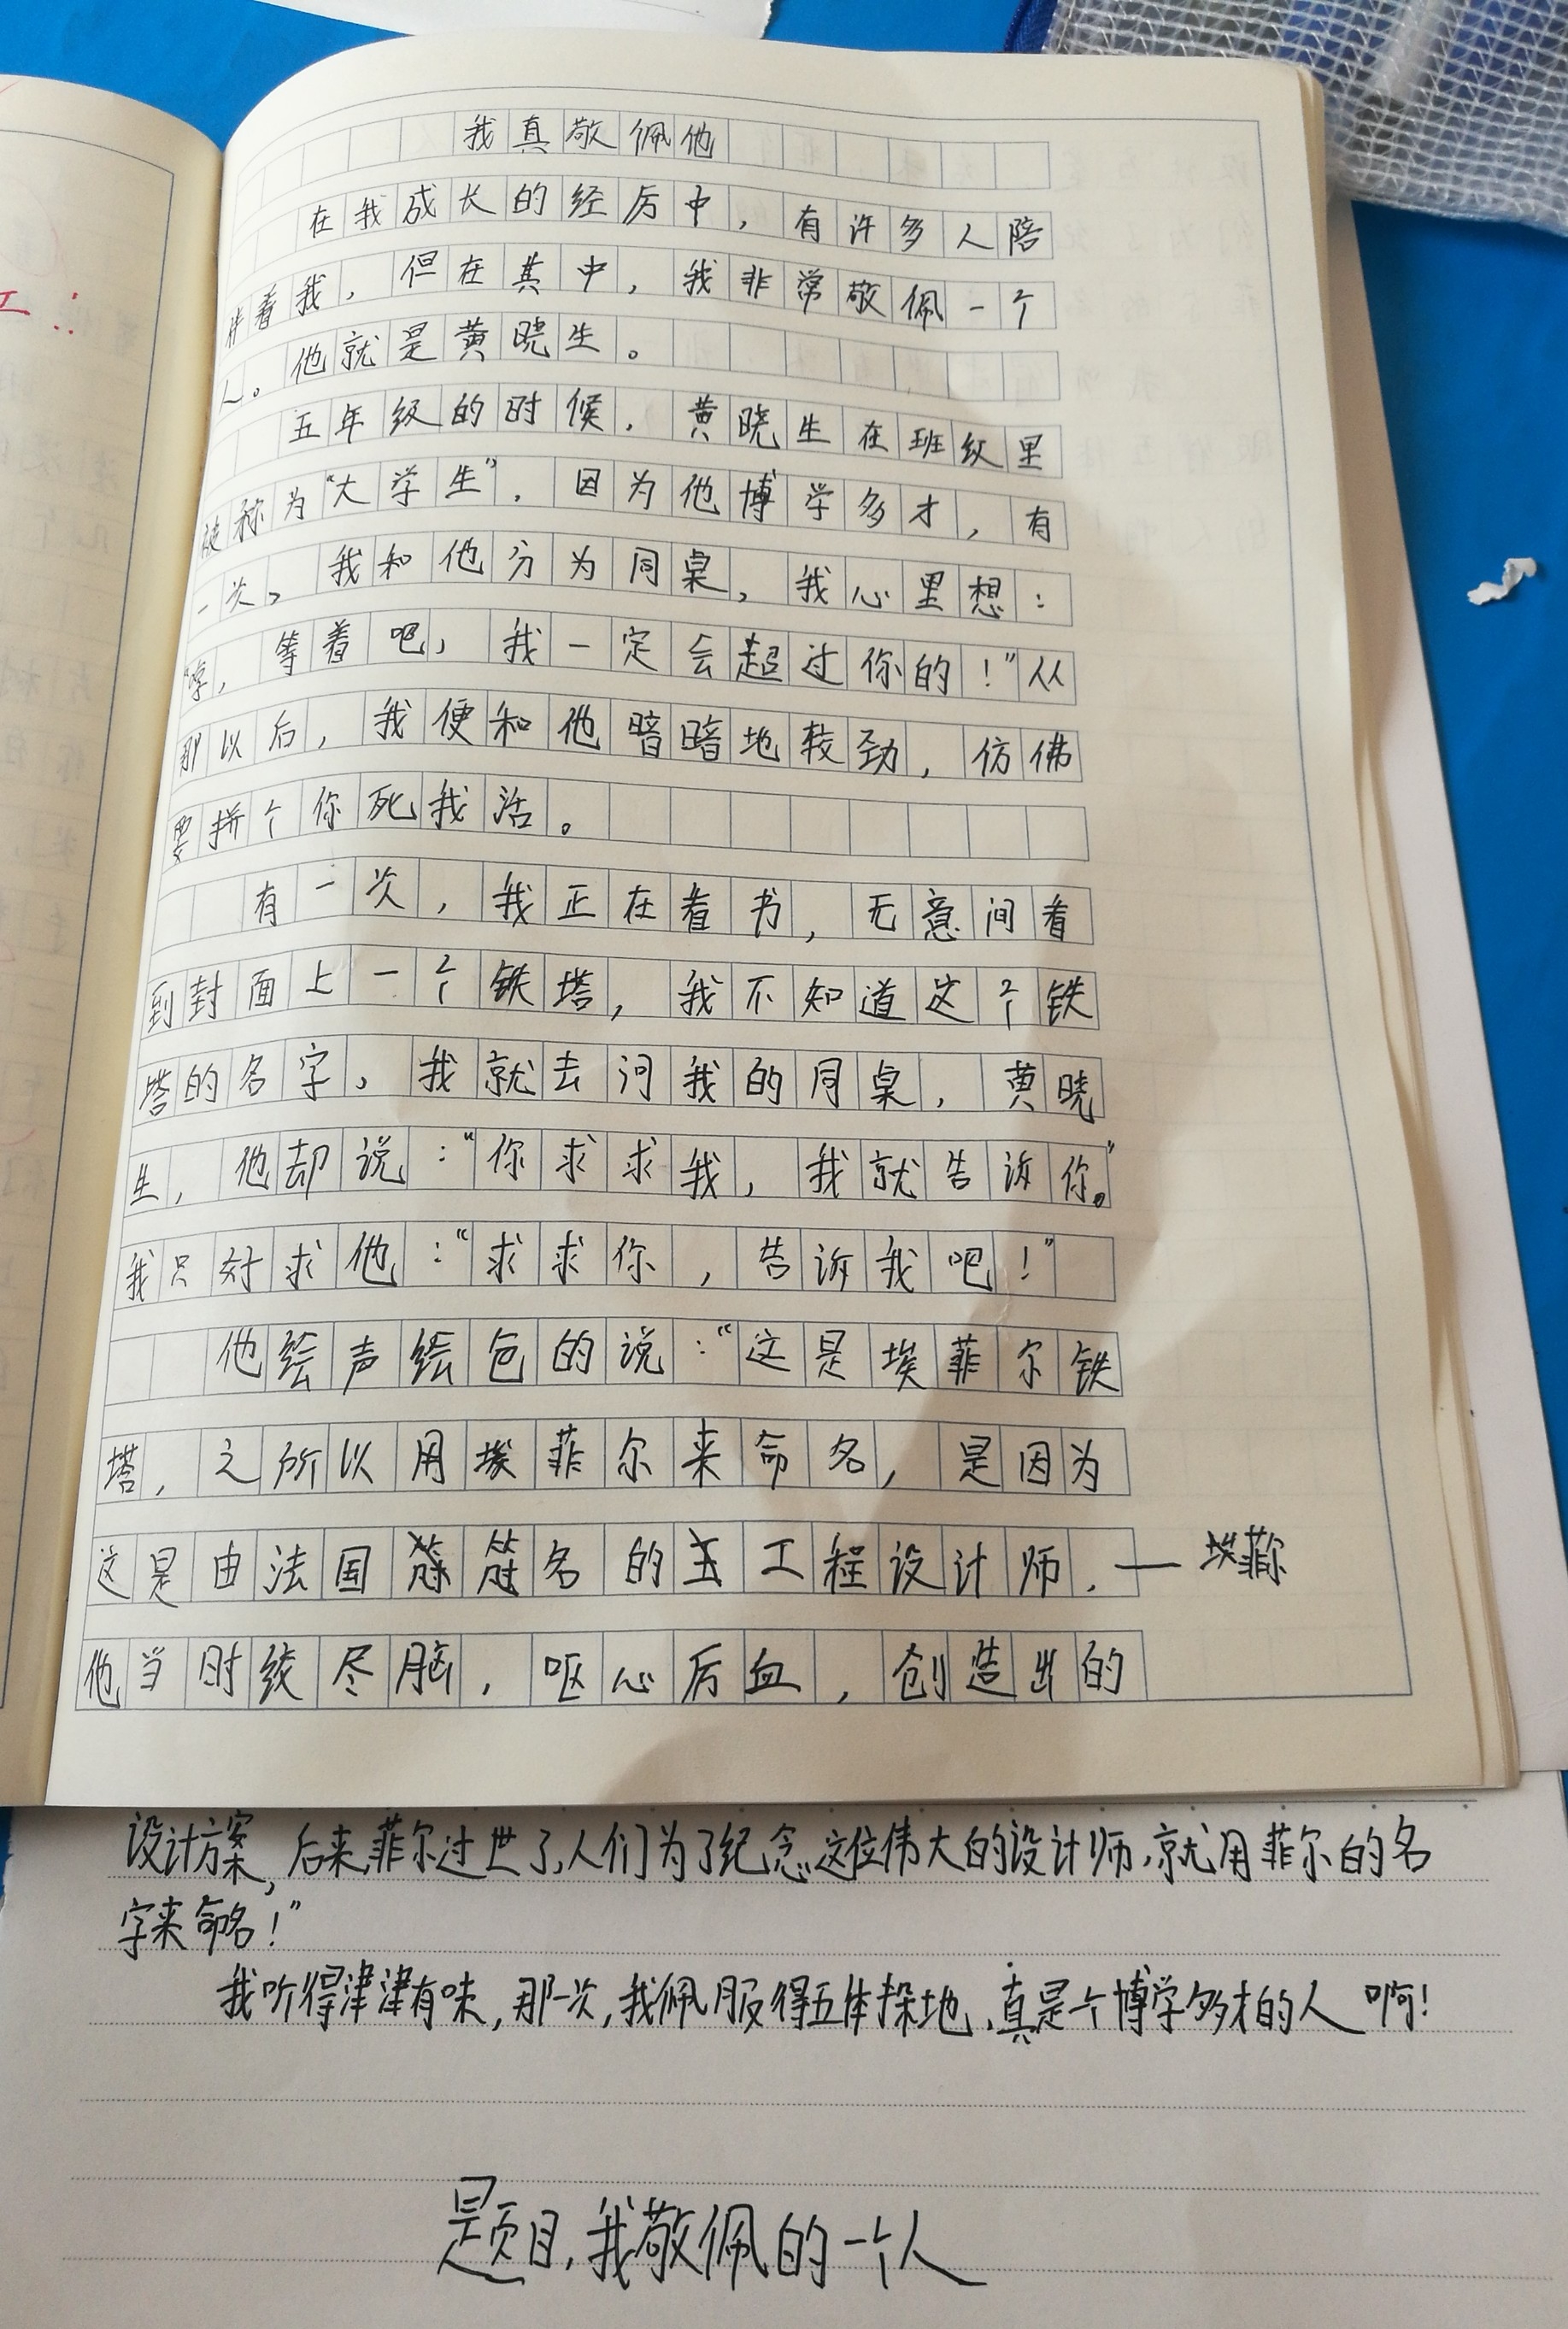 我真敬佩他
在我成长的经历中，有许多人陪
伴着我，但在其中，我非常敬佩一个
人。他就是黄晓生。
五年级的时候，黄晓生在班级里
被称为“大学生”，因为他博学多才，有
一次，我和他分为同桌，我心里想：
“哼，等着吧，我一定会超过你的！”从
那以后，我便和他暗暗地较劲，仿佛
要拼个你死我活。
有一次，我正在看书，无意间看
到封面上一个铁塔，我不知道这个铁
塔的名字，我就去问我的同桌，黄晓
生，他却说：“你求求我，我就告诉你。”
我只好求他：“求求你，告诉我吧！”
他绘声绘色的说：“这是埃菲尔铁
塔，之所以用埃菲尔来命名，是因为
这是由法国名的工程设计师，——埃菲尔
他当时绞尽脑，呕心历血，创造出的
设计方案，后来，菲尔过世了，人们为了纪念这位伟大的设计师，就用菲尔的名
字来命名！”
我听得津津有味，那一次，我佩服得五体投地，真是个博学多才的人啊！
题目，我敬佩的一个人